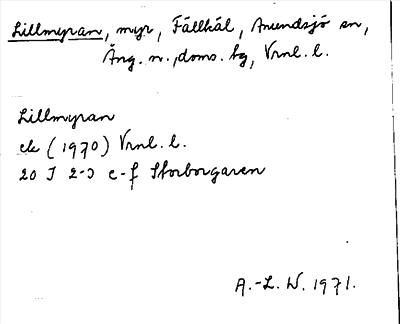 Lillmyran, myr, Fällhål, Anundsjö sn,
Ång. n., doms. bg, Vrnl. l.
Lillmyran
ek (1970) Vrnl. l.
20 I 2-3 e-f Storborgaren
A.-L. W. 1971.